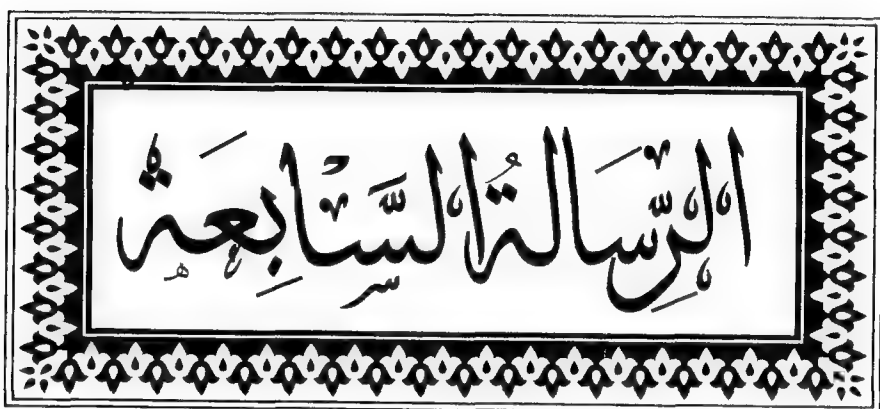 الرِّسَالةُ السَّابِعَةُ